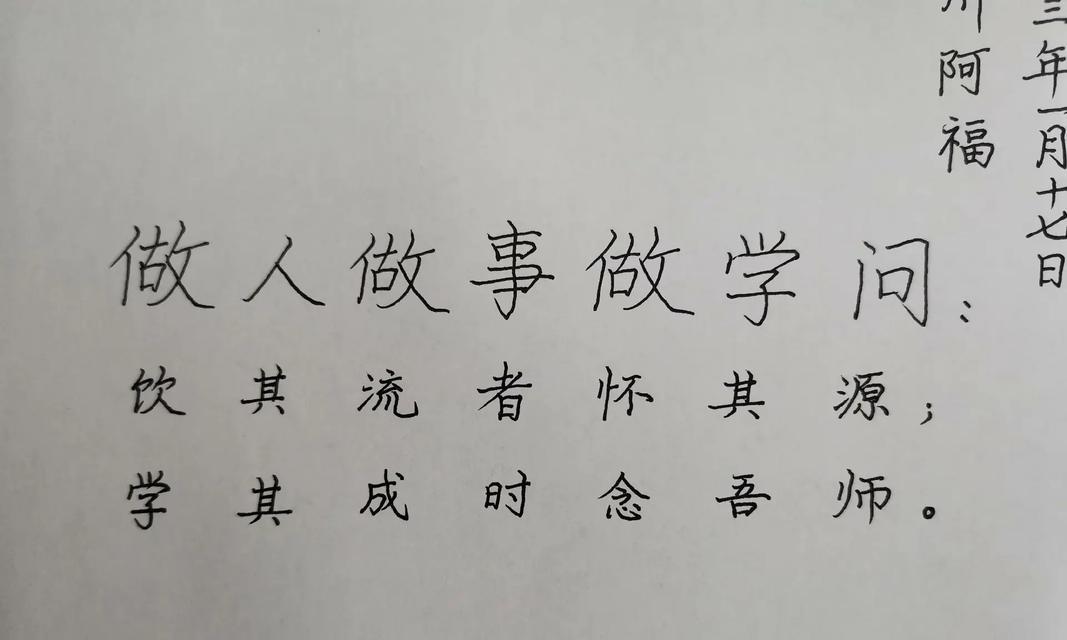 做人做事做学问：
饮其流者怀其源；
学其成时念吾师。
三年一月十七日
川阿福